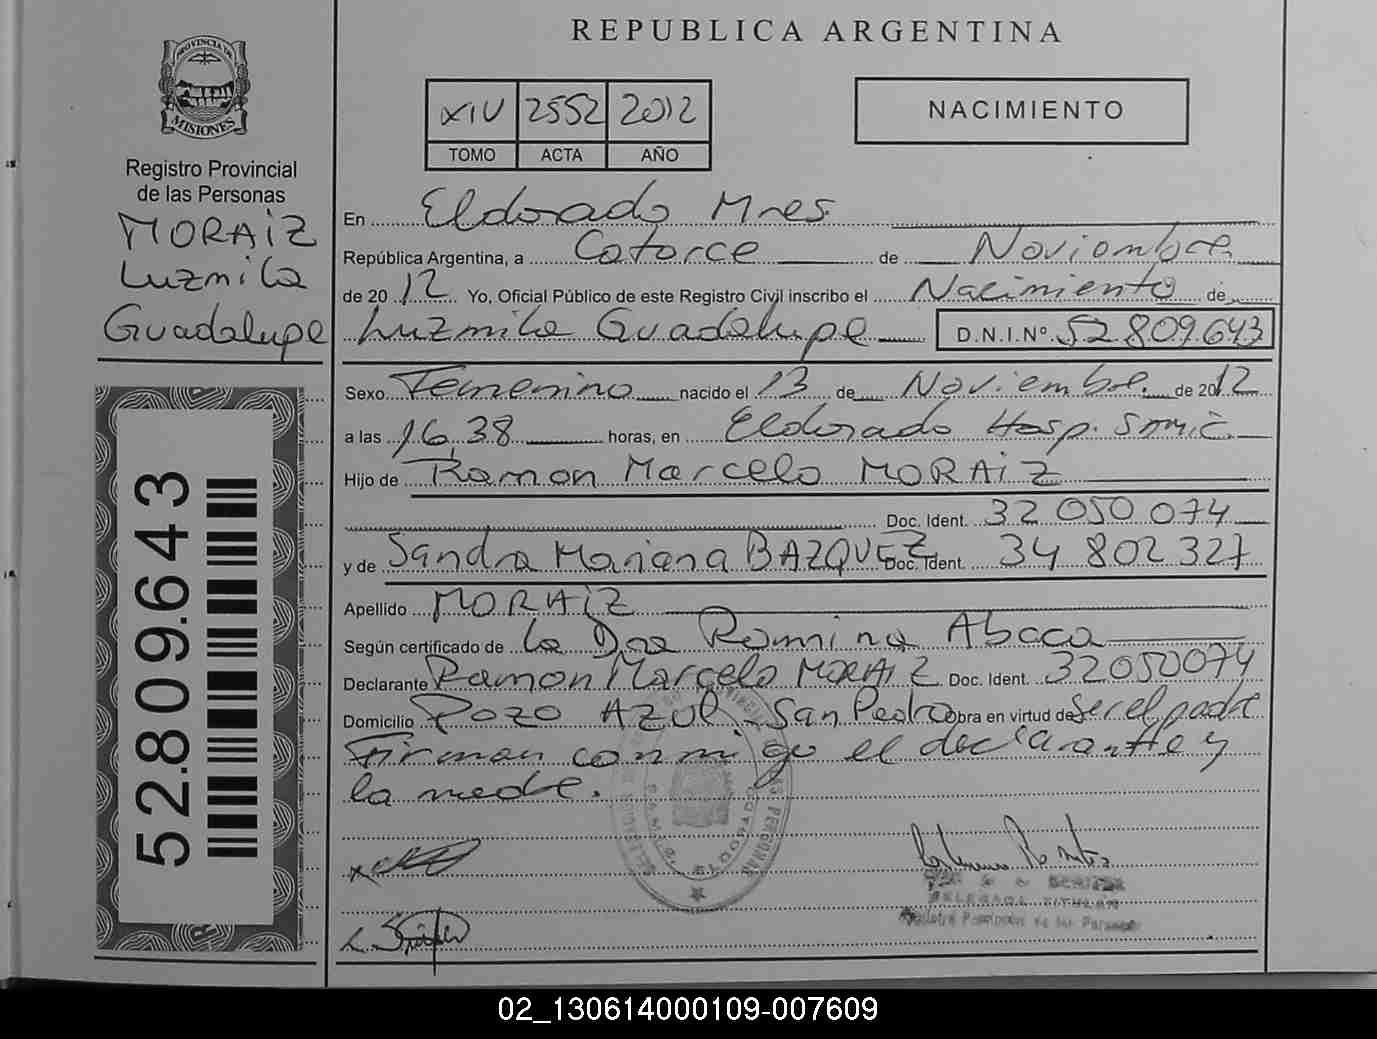 REPUBLICA ARGENTINA
PROVINCIA DE
MISIONES
Registro Provincial
de las Personas
MORAiZ
Luzmila
Guadalupe
52.809.643
XIV 2552 2012
TOMO ACTA AÑO
NACIMIENTO
En Eldorado Mnes
República Argentina, a Catorce de Noviembre
de 2012 Yo, Oficial Público de este Registro Civil inscribo el Nacimiento de
Luzmila Guadalupe D.N.I.Nº 52.809.643
Sexo Femenino nacido el 13 de Noviembre de 2012
a las 16,38 horas, en Eldorado Hosp. Samic
Hijo de Ramon Marcelo MORAiZ
Doc. Ident. 32 050 074
y de Sandra Mariana BAZQUEZ Doc. Ident. 34 802 327
Apellido MORAiZ
Según certificado de la Dra Romina Abaca
Declarante Ramon Marcelo MORAIZ Doc. Ident. 32050074
Domicilio POZO AZUL - San Pedro obra en virtud de Ser el padre
Firman conmigo el declarante y
la madre.
DELEGADA TITULAR
Registro Provincial de las Personas
02_130614000109-007609